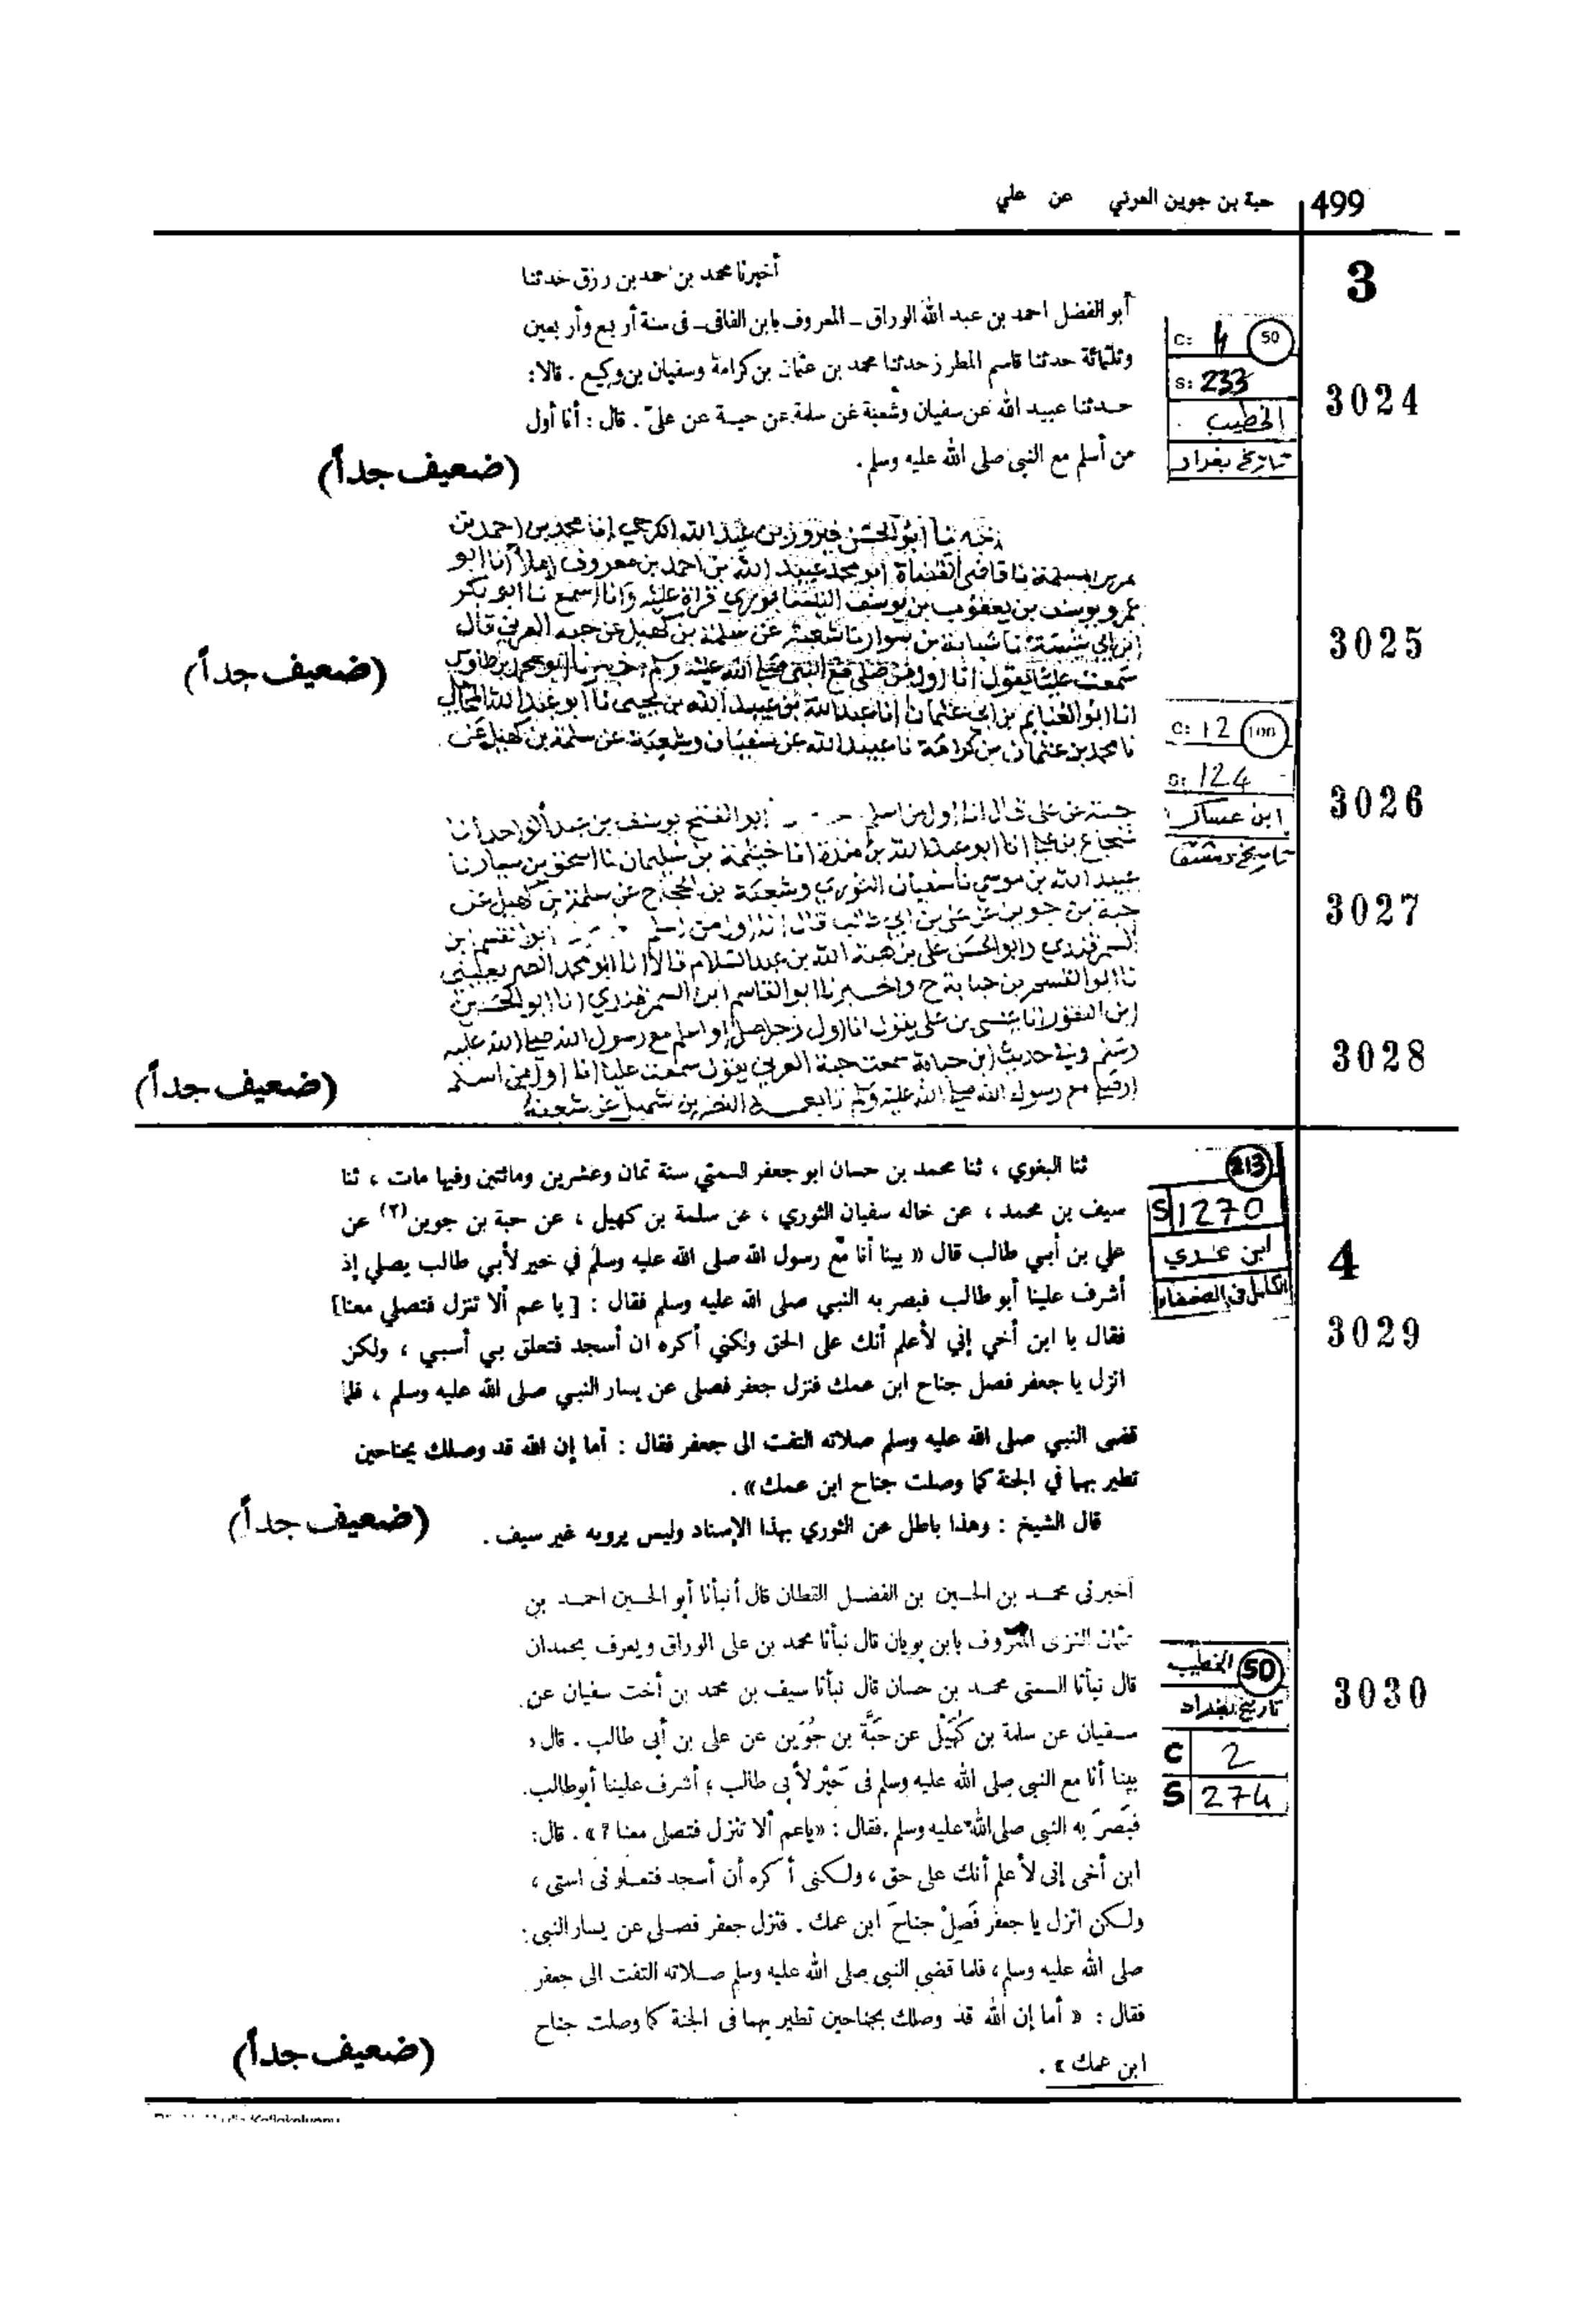 499
حبة بن جوين العرني عن علي
3
أخبرنا محمد بن احمد بن رزق حدثنا
أبو الفضل احمد بن عبد الله الوراق ـ المعروف بابن الفافى ـ فى سنة أربع وأربعين
وثلثمائة حدثنا قاسم المطرز حدثنا محمد بن عثمان بن كرامة وسفيان بن وكيع . قالا:
حدثنا عبيد الله عن سفيان وشعبة عن سلمة عن حبة عن علىّ . قال : أنا أول
من أسلم مع النبى صلى الله عليه وسلم .
(ضعيف جداً)
C: 4 50
S: 233
الخطيب
تاريخ بغداد
3024
احمد بن
قاضى القضاة ابو محمد عبيد الله بن احمد بن معروف املا انا ابو
عمرو يوسف بن يعقوب بن يوسف النيسابوري قراة عليه وانا اسمع نا ابو بكر
شبابة بن سوار نا شعبة عن سلمة بن كهيل عن حبه العرني قال
سمعت عليا يقول انا اول من صلى مع النبي صلى الله عليه وسلم
انا ابو الغنايم بن ابي عثمان انا عبد الله بن عبيد الله بن يحيى نا ابو عبد الله المحاملي
نا محمد بن عثمان بن كرامة نا عبيد الله عن سفيان وشعبة عن سلمة بن كهيل عن
(ضعيف جداً)
3025
C: 12 100
S: 124
ابن عساكر
تاريخ دمشق
3026
حبة عن على قال انا اول من اسلم ابو الفتح يوسف بن عبد الواحد انا
شجاع بن علي انا ابو عبد الله بن مندة انا خيثمة بن سليمان نا اسحق بن سيار نا
عبيد الله بن موسي نا سفيان الثوري وشعبة بن الحجاج عن سلمة بن كهيل عن
حبة بن جوين عن علي بن ابي طالب قال انا اول من اسلم
السمرقندي وابو الحسن على بن هبة الله بن عبد السلام قالا انا ابو محمد الصريفيني
نا ابو القسم بن حبابة ح واخبرنا ابو القاسم ابن السمرقندي انا ابو الحسين
ابن النقور انا عيسى بن على يقول انا اول رجل صلى او اسلم مع رسول الله صلى الله عليه
وسلم وفي حديث ابن حبابة سمعت حبة العرني يقول سمعت عليا انا اول من اسلم
او صلى مع رسول الله صلى الله عليه وسلم النضر بن شميل عن شعبة
(ضعيف جداً)
3027
3028
ثنا البغوي ، ثنا محمد بن حسان ابو جعفر السمتي سنة ثمان وعشرين ومائتين وفيها مات ، ثنا
سيف بن محمد ، عن خاله سفيان الثوري ، عن سلمة بن كهيل ، عن حبة بن جوين(٢) عن
علي بن أبي طالب قال « بينا أنا مع رسول الله صلى الله عليه وسلم في خير لأبي طالب يصلي إذ
أشرف علينا أبو طالب فبصر به النبي صلى الله عليه وسلم فقال : [ يا عم ألا تنزل فتصلي معنا]
فقال يا ابن أخي إني لأعلم أنك على الحق ولكني أكره ان أسجد فتعلق بي أسبي ، ولكن
انزل يا جعفر فصل جناح ابن عمك فنزل جعفر فصلى عن يسار النبي صلى الله عليه وسلم ، فلما
قضى النبي صلى الله عليه وسلم صلاته التفت الى جعفر فقال : أما إن الله قد وصلك بجناحين
تطير بهما في الجنة كما وصلت جناح ابن عمك» .
قال الشيخ : وهذا باطل عن الثوري بهذا الإسناد وليس يرويه غير سيف .
(ضعيف جداً)
213
S 1270
ابن عدي
الكامل في الضعفاء
4
3029
أخبرنى محمد بن الحسين بن الفضل القطان قال أنبأنا أبو الحسين احمد بن
عثمان النزى المعروف بابن بويان قال نبأنا محمد بن على الوراق ويعرف بحمدان
قال نبأنا السمتى محمد بن حسان قال نبأنا سيف بن محمد بن أخت سفيان عن
سفيان عن سلمة بن كُهَيْل عن حَبَّة بن جُوَين عن على بن أبى طالب . قال :
بينا أنا مع النبى صلى الله عليه وسلم فى حَيْر لأبى طالب ؛ أشرف علينا أبو طالب .
فبَصرَ به النبى صلى الله عليه وسلم فقال : «ياعم ألا تنزل فتصلى معنا ؟ » . قال:
ابن أخى إنى لأعلم أنك على حق ، ولكنى أكره أن أسجد فتعلونى استى ،
ولكن انزل يا جعفر فَصِلْ جناحَ ابن عمك . فنزل جعفر فصلى عن يسار النبى
صلى الله عليه وسلم ، فلما قضى النبى صلى الله عليه وسلم صلاته التفت الى جعفر
فقال : « أما إن الله قد وصلك بجناحين تطير بهما فى الجنة كما وصلت جناح
ابن عمك » .
(ضعيف جداً)
الخطيب 50
تاريخ بغداد
C 2
S 274
3030